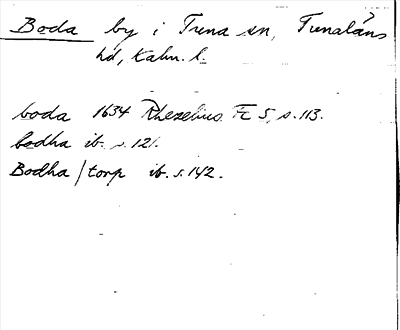 Boda by i Tuna sn, Tunaläns
hd, Kalm. l.
boda 1634 Rhezelius Fc 5, s. 113.
bodha ib. s. 121.
Bodha/torp ib. s. 142.